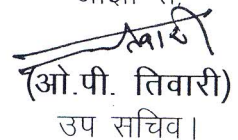 (ओ.पी. तिवारी)
उप सचिव।